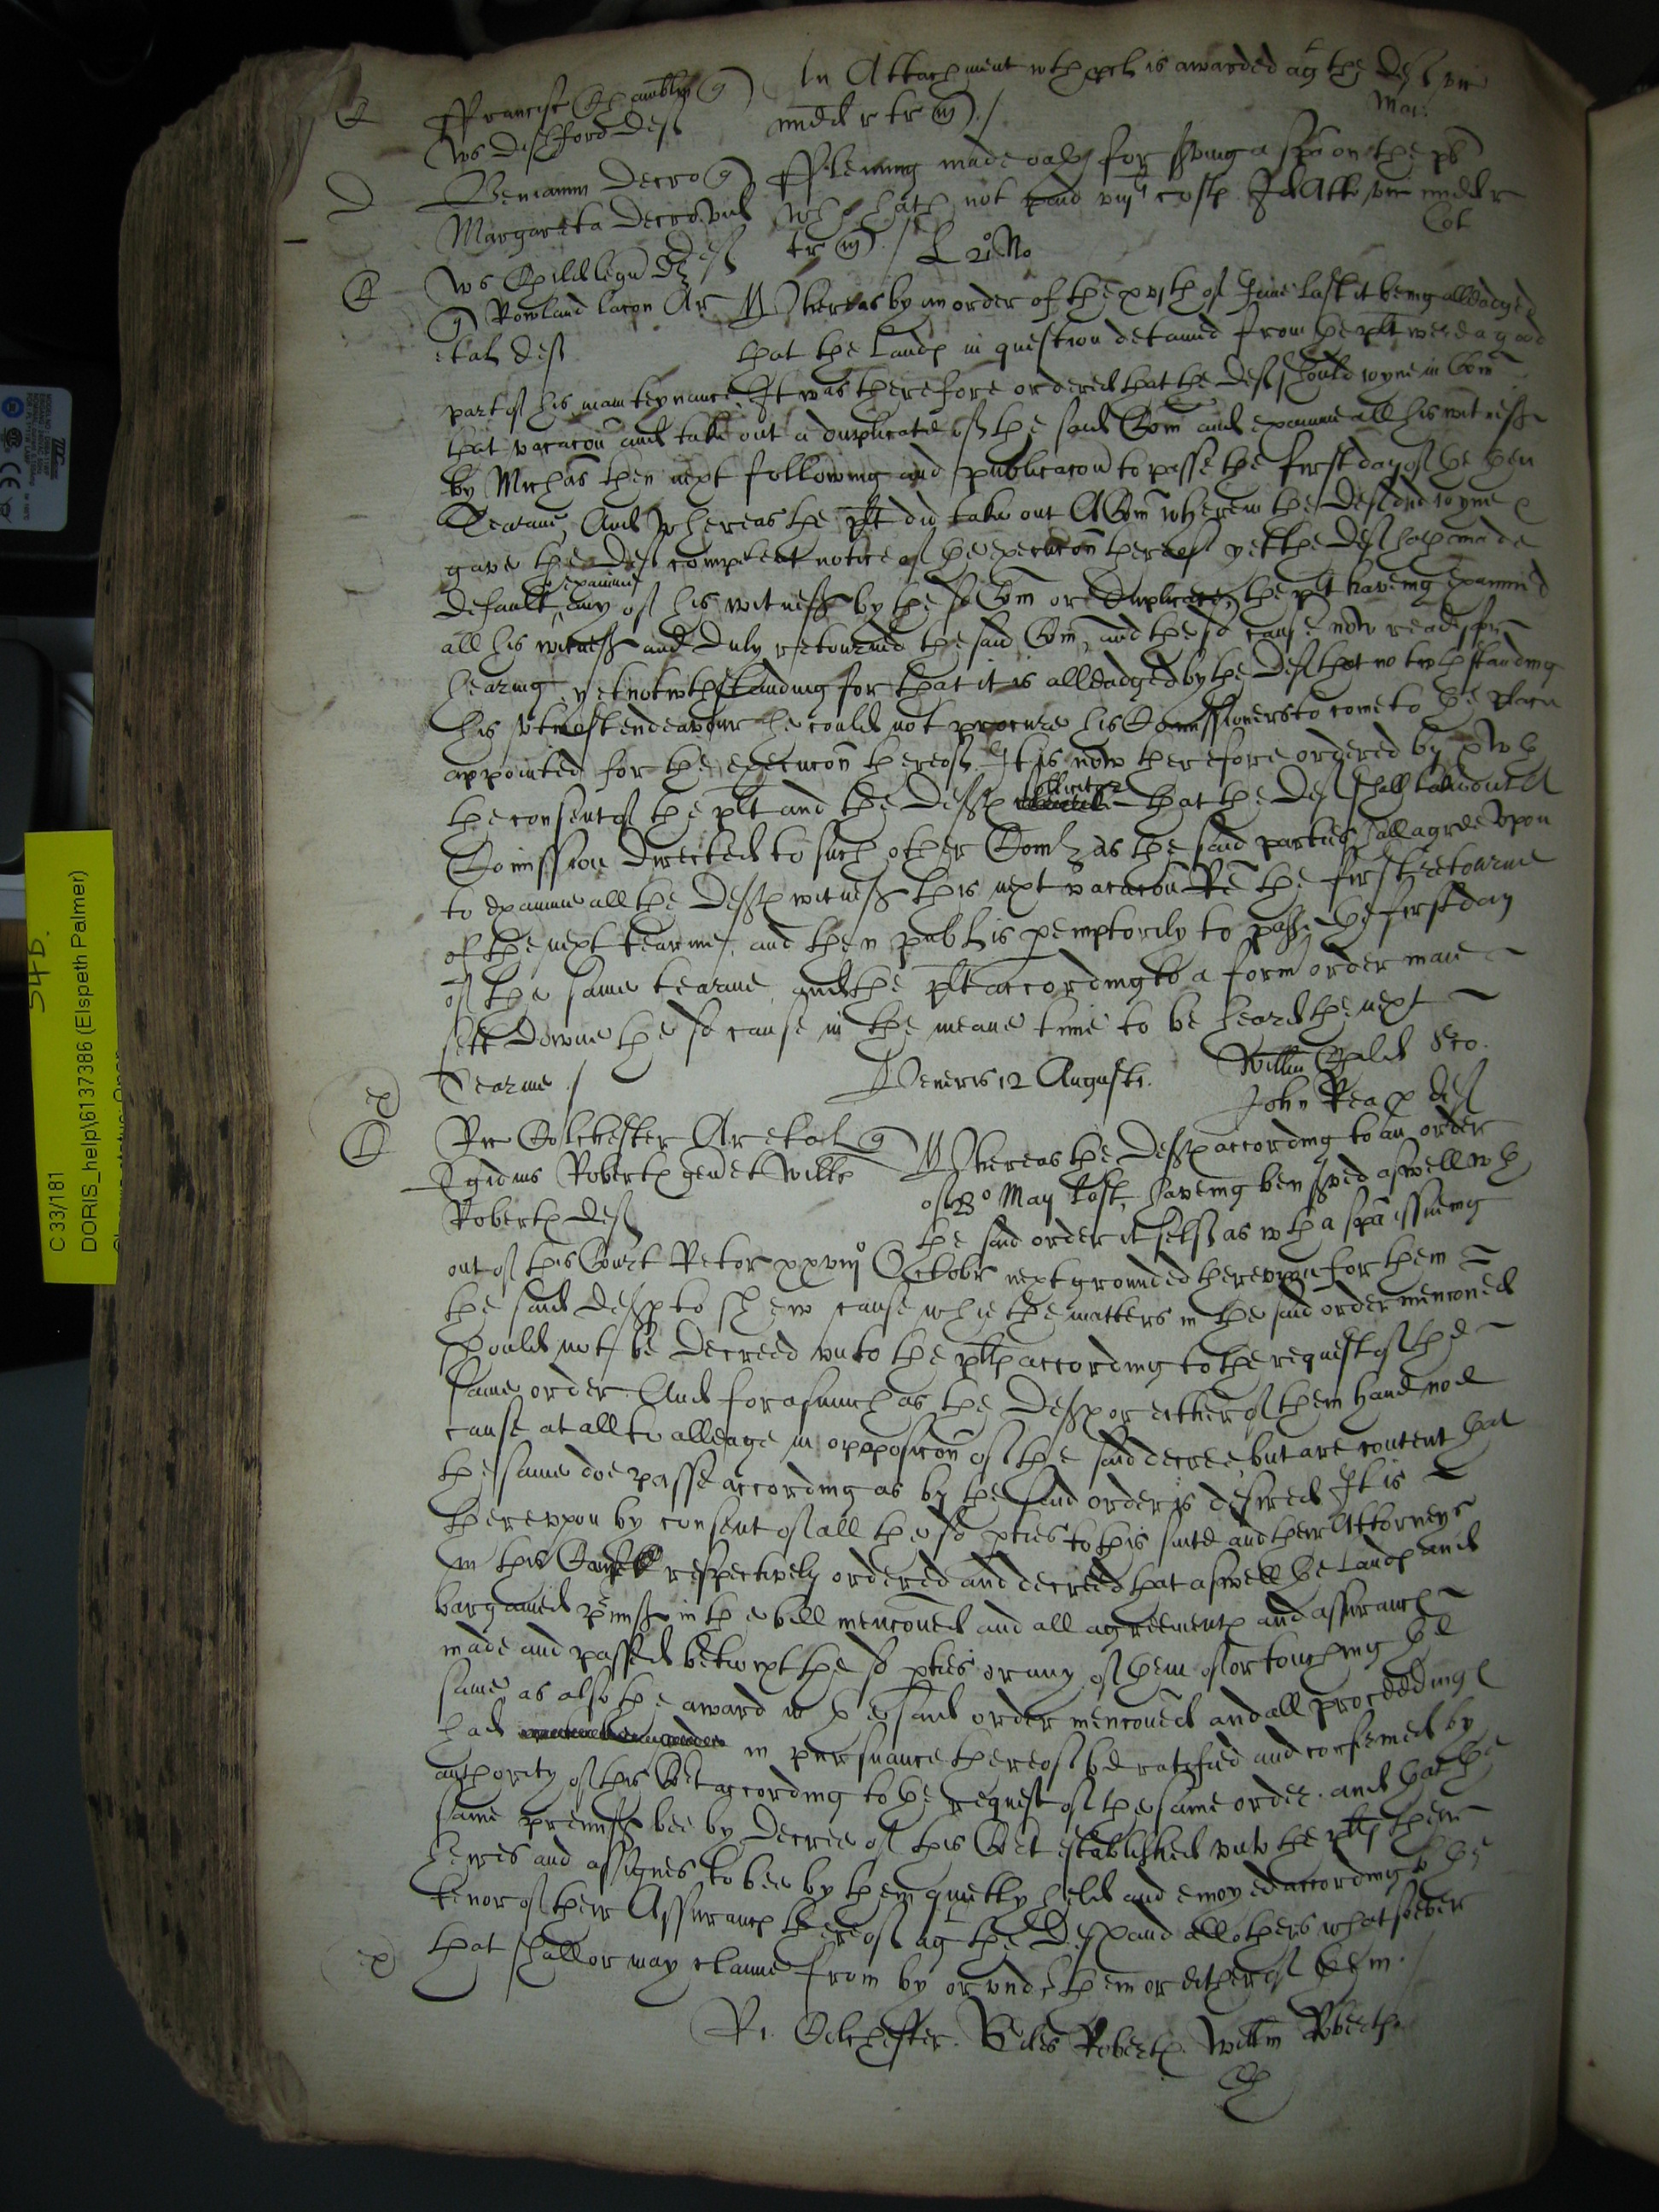 C
ffrancisc Chamblyn q
ws Dishford Deft
An Attachment wth pcl is awarded ag the Deft vic
Midd r tr m). /
Mar:
D
Beniamin Decro q
Margareta Decro vid
ws Childlegh Deft
ffleming made oath for sving a spa on the pl
wch hath not paid viijs costs. Id Atto vic Midd r
tr m). / L 2i No
Cot
C
q Rowland Lacon Ar
et al Deft
Whereas by an order of the xvjth of June last it being alleadged
that the Landp in question detained from the plt were a good
part of his mainteynance. It was therefore ordered that the Deft should ioyne in Com
that vacacon and take out a duplicate of the said Com and examine all his witness
by Michas then next following and publicacon to passe the first day of the then
Tearme, And whereas the plt did take out A Com wherein the Deft did ioyne &
gave the Deft competent notice of the execucon thereof yet the Deft hath made
default to examine any of his witness by the sd Com or duplicate, the plt haveing examined
all his witness and duly retourned the said Com, and the sd cause now readie for
hearing, yet notwthstanding for that it is alleadged by the Deft that notwthstanding
his vtmost endeavour he could not procure his Comissioners to come to the place
appointed for the execucon thereof. It is now therefore ordered by & wth
the consent of the plt and the Deftp sollicitor that the Deft shall take out A
Comission directed to such other Comrs as the said parties shall agree vpon
to examine all the Deftp witness this next vacacon Re the first retourne
of the next tearme, and then publis pemptorily to passe the first day
of the same tearme, and the plt according to a form order maie
sett downe the sd cause in the meane time to be heard the next
Tearme /
Veneris 12 Augusti.
Willm Child &co.
John Reap Deft
C
Ric Colchester Ar et al q
Egidius Robertp gen et Willm
Robertp Deft
Whereas the Deftp according to an order
of 28o May last, haveing ben sved aswell wth
the said order it self as wth a spa issueing
out of this Court Retor xxviijo Octobr next grounded therevpon for them
the said Deftp to shew cause whie the matters in the said order mencioned
should not be decreed vnto the pltp according to the request of the
same order. And forasmuch as the Deftp or either of them have noe
cause at all to alleage in opposicon of the said decree, but are content that
the same doe passe according as by the said order is desired It is
therevpon by consent of all the sd pties to this suite and their Attorneys
in this Court respectively ordered and decreed that aswell the Landp and
bargained pmiss in the bill mencioned and all agreementp and assurance
made and passed betwixt the sd pties or any of them of or touching the
same, as also the award in the said order mencioned and all proceedings
had in pursuance thereof be ratified and confirmed by
authority of this Cort according to the request of the same order. and that the
same premiss bee by decree of this Cort established vnto the pltp their
heires and assignes to bee by them quietly held and enioyed according to the
tenor of their Assurance thereof ag the Deftp and all others whatsoever
that shall or may claime from by or vnder them or either of them. /
Ri. Colchester. Giles Robertp. Willm Robertp.
54D.
C 33/181
DORIS_help\6137386 (Elspeth Palmer)